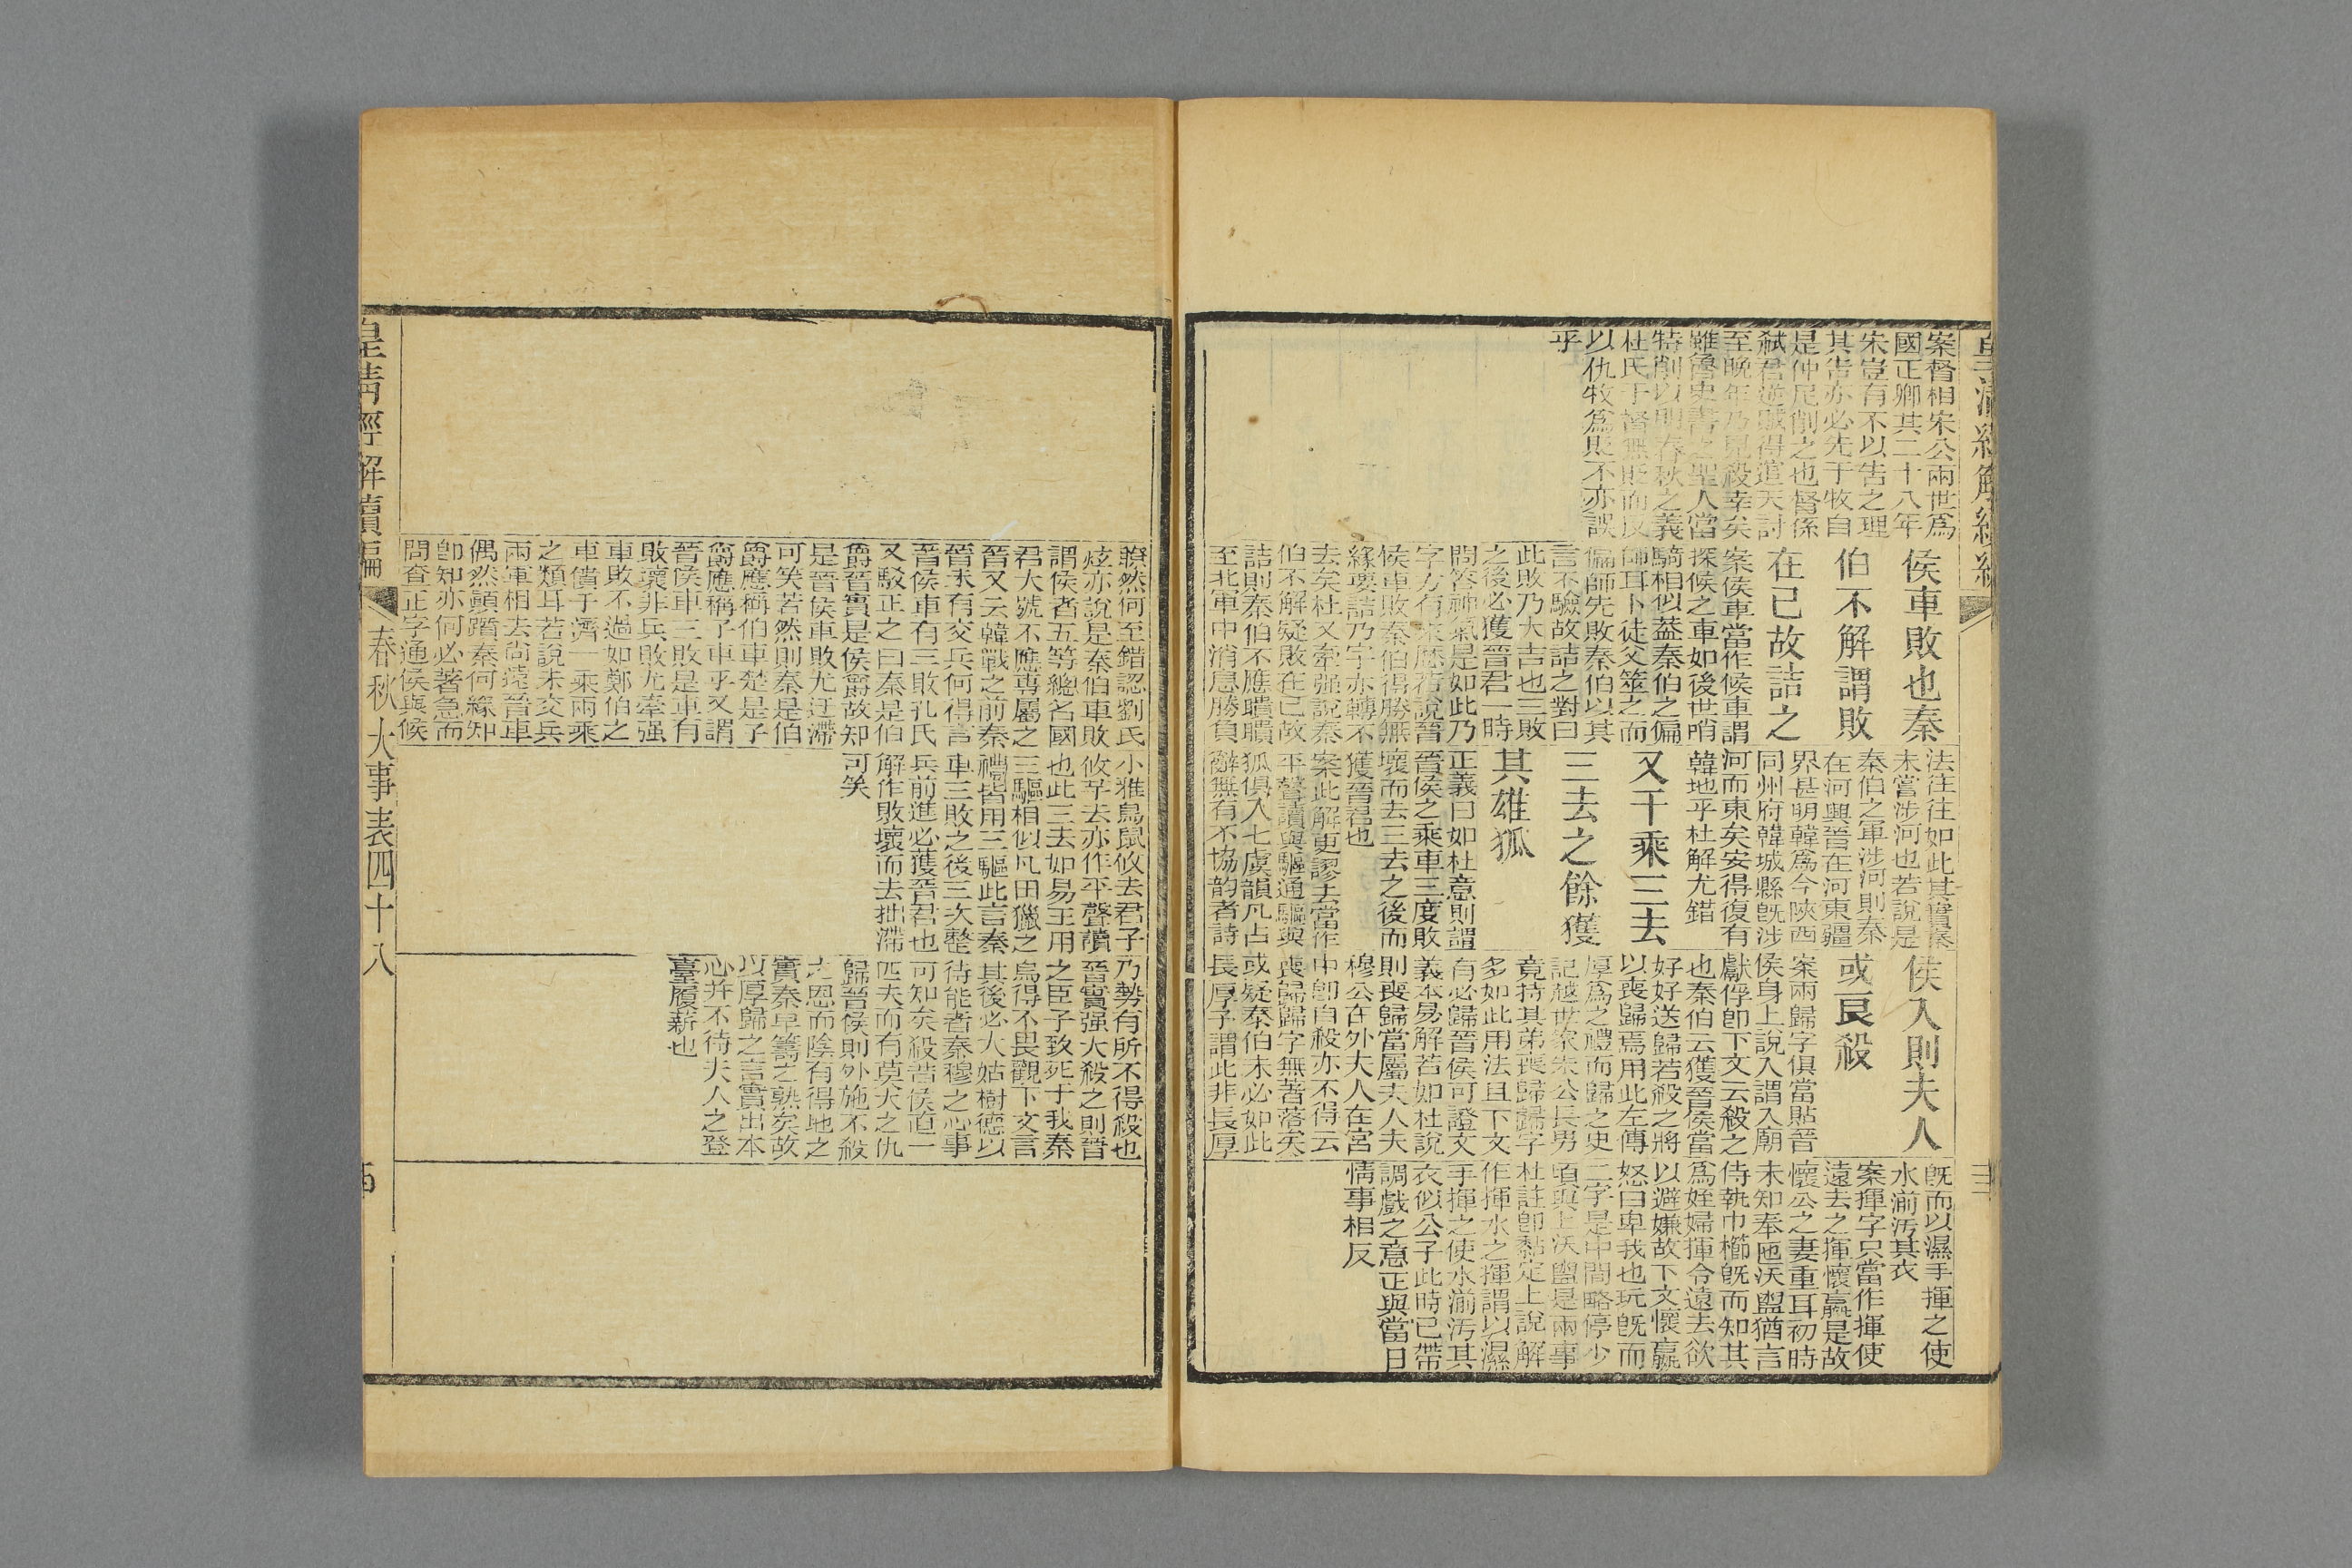 案督相宋公兩世爲
國正卿其二十八年
宋豈有不以告之理
其告亦必先于牧自
是仲尼削之也督係
弑君逆賊得逭天討
至晚年乃見殺幸矣
雖魯史書之聖人當
特削以明春秋之義
杜氏于督無貶而反
以仇牧爲貶不亦誤
乎
侯車敗也秦
伯不解謂敗
在己故詰之
案侯車當作候車謂
探候之車如後世哨
騎相似葢秦伯之偏
師耳卜徒父筮之而
偏師先敗秦伯以其
言不驗故詰之對曰
此敗乃大吉也三敗
之後必獲晉君一時
問答神氣是如此乃
字方有來歷若說晉
侯車敗秦伯得勝無
緣要詰乃字亦轉不
去矣杜又牽强說秦
伯不解疑敗在己故
詰則秦伯不應聵聵
至此軍中消息勝負
法往往如此其實秦
未嘗涉河也若說是
秦伯之軍涉河則秦
在河與晉在河東疆
界甚明韓爲今陝西
同州府韓城縣旣涉
河而東矣安得復有
韓地乎杜解尤錯
又千乘三去
三去之餘獲
其雄狐
正義曰如杜意則謂
晉侯之乘車三度敗
壞而去三去之後而
獲晉君也
案此解更謬去當作
平聲讀與驅通驅與
狐俱入七虞韻凡占
辭無有不協韵者詩
侯入則夫人
或自殺
案兩歸字俱當貼晉
侯身上說入謂入廟
獻俘卽下文云殺之
也秦伯云獲晉侯當
好好送歸若殺之將
以喪歸焉用此左傳
厚爲之禮而歸之史
記越世家朱公長男
竟持其弟喪歸歸字
多如此用法且下文
有必歸晉侯可證文
義本易解若如杜說
則喪歸當屬夫人夫
穆公在外夫人在宮
中卽自殺亦不得云
喪歸歸字無著落矣
或疑秦伯未必如此
長厚予謂此非長厚
旣而以濕手揮之使
水湔汚其衣
案揮字只當作揮使
遠去之揮懷嬴是故
懷公之妻重耳初時
未知奉匜沃盥猶言
侍執巾櫛旣而知其
爲姪婦揮令遠去欲
以避嫌故下文懷嬴
怒曰卑我也玩旣而
二字是中間略停少
頃與上沃盥是兩事
杜註卽黏定上說解
作揮水之揮謂以濕
手揮之使水湔汚其
衣似公子此時已帶
調戲之意正與當日
情事相反
瞭然何至錯認劉氏
炫亦說是秦伯車敗
謂侯者五等總名國
君大號不應專屬之
晉又云韓戰之前秦
晉未有交兵何得言
晉侯車有三敗孔氏
又駁正之曰秦是伯
爵晉實是侯爵故知
是晉侯車敗尤迂滯
可笑若然則秦是伯
爵應稱伯車楚是子
爵應稱子車乎又謂
晉侯車三敗是車有
敗壞非兵敗尤牽强
車敗不過如鄭伯之
車僨于濟一乘兩乘
之類耳若說未交兵
兩軍相去尚遠晉車
偶然顚躓秦何緣知
卽知亦何必著急而
問查正字通侯與候
小雅鳥鼠攸去君子
攸芋去亦作平聲讀
也此三去如易王用
三驅相似凡田獵之
禮皆用三驅此言秦
車三敗之後三次整
兵前進必獲晉君也
解作敗壞而去拙滯
可笑
乃勢有所不得殺也
晉實强大殺之則晉
之臣子致死于我秦
烏得不畏觀下文言
其後必大姑樹德以
待能者秦穆之心事
可知矣殺晉侯直一
匹夫而有莫大之仇
歸晉侯則外施不殺
之恩而陰有得地之
實秦早籌之熟矣故
以厚歸之言實出本
心并不待夫人之登
臺履薪也
皇淸經解續編
春秋大事表四十八